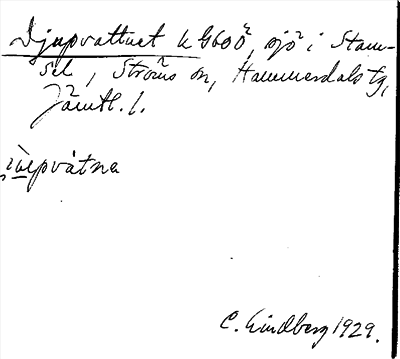 Djupvattnet k G600², sjö i Stam-
sel, Ströms sn, Hammerdals tg,
Jämtl. l.
C. Lindberg 1929.